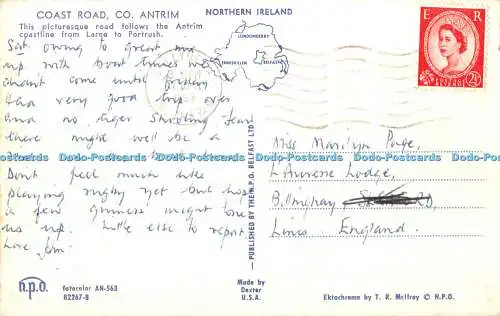 COAST ROAD, CO. ANTRIM
This picturesque road follows the Antrim
coastline from Larne to Portrush.
NORTHERN IRELAND
LONDONDERRY
ENNISKILLEN
BELFAST
E R
2½D
POSTAGE REVENUE
Sat. owing to great mix
up with boat times we
didn't come until friday
Had very good trip over
and no tiger shooting
there might well be a
Don't feel much like
playing rugby yet but hope
a few guinness might tone
us up. Little else to report
Love
Miss Marilyn Page,
Lodge,
Billinghay
Lincs,
England.
Dodo-Postcards Dodo-Postcards Dodo-Postcards Dodo-Postcards Dodo-Postcards Dodo-Postcards
PUBLISHED BY THE N.P.O. BELFAST LTD
n.p.o.
fotocolor AN-563
82267-B
Made by
Dexter
U.S.A.
Ektachrome by T. R. McIlroy © N.P.O.